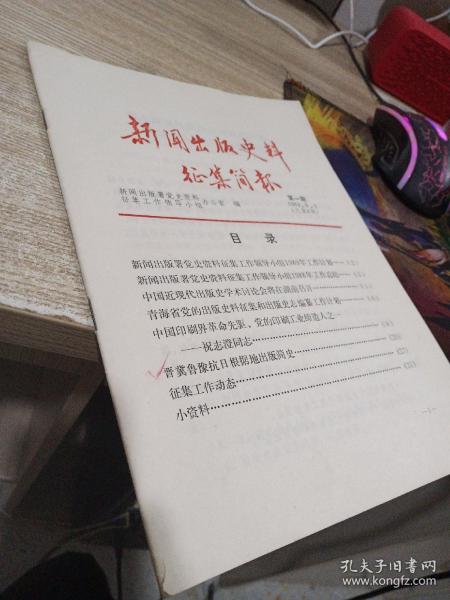 新闻出版史料
征集简报
新闻出版署党史资料
征集工作领导小组办公室 编
第一期
目 录
新闻出版署党史资料征集工作领导小组1989年工作计划
新闻出版署党史资料征集工作领导小组1988年工作总结
中国近现代出版史学术讨论会将在湖南召开
青海省党的出版史料征集和出版史志编纂工作计划
中国印刷界革命先驱、党的印刷工业缔造人之一
——祝志澄同志
晋冀鲁豫抗日根据地出版简史
征集工作动态
小资料
孔夫子旧书网
www.kongfz.com